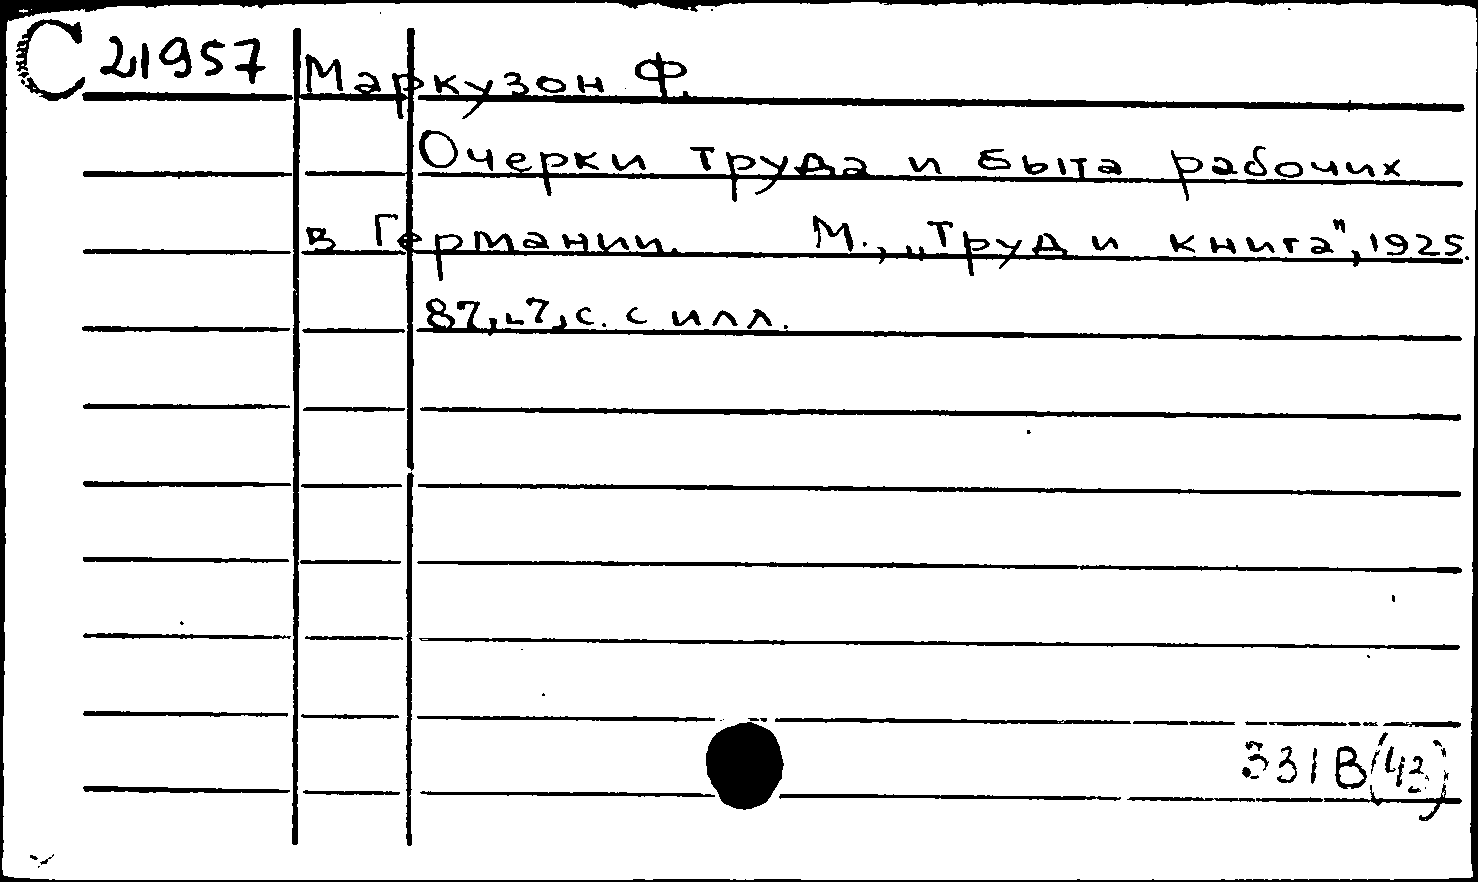 С 21957 Маркузон Ф.
Очерки труда и быта рабочих
в Германии. М., „Труд и книга", 1925.
87, 7, с. с илл.
331В(43)